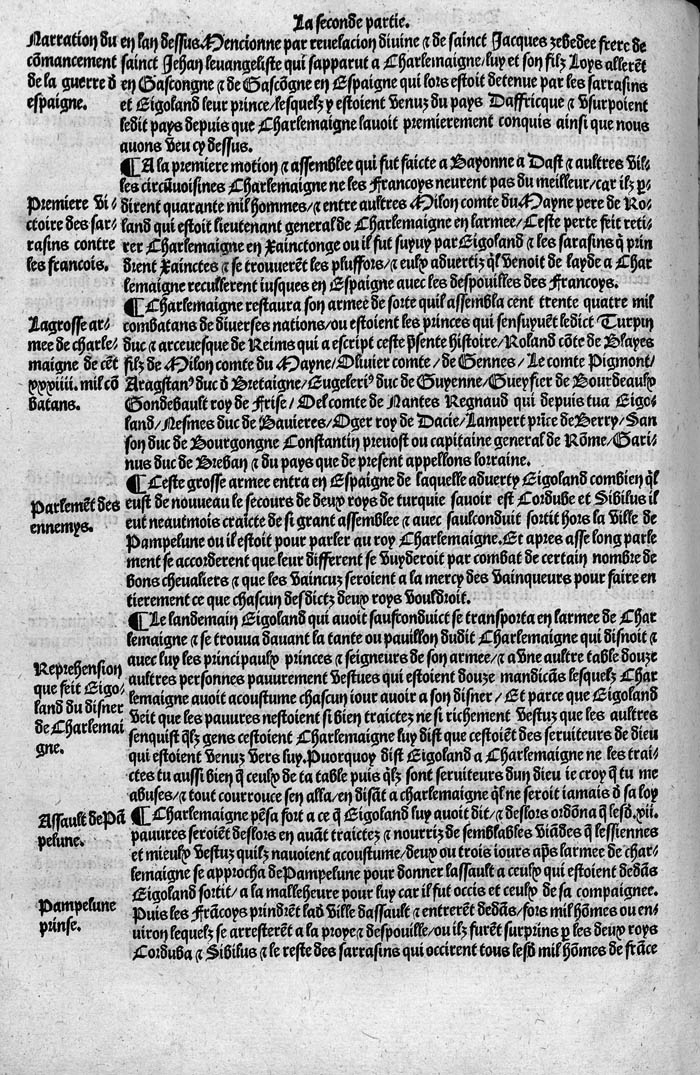 La seconde partie.
Narration du
cõmancement
de la guerre d̃
espaigne.
en lan dessus Mencionne par reuelacion diuine ⁊ de sainct Jacques zebedee frere de
sainct Jehan leuangeliste qui sapparut a Charlemaigne/luy et son filz Loys allerẽt
en Gascongne ⁊ de Gascõgne en Espaigne qui lors estoit detenue par les sarrasins
et Eigoland leur prince/lesquelz y estoient venuz du pays Daffricque ⁊ vsurpoient
ledit pays depuis que Charlemaigne lauoit premierement conquis ainsi que nous
auons veu cy dessus.
¶ A la premiere motion ⁊ assemblee qui fut faicte a Bayonne a Dast ⁊ aultres vil-
les circũuoisines Charlemaigne ne les Francoys neurent pas du meilleur/car ilz p̱-
Premiere vi-
ctoire des sar-
rasins contre
les francois.
dirent quarante mil hommes/⁊ entre aultres Milon comte du Mayne pere de Ro-
land qui estoit lieutenant general de Charlemaigne en larmee/Ceste perte feit reti-
rer Charlemaigne en Xainctonge ou il fut suyuy par Eigoland ⁊ les sarasins q̃ prin
drent Xainctes ⁊ se trouuerẽt les plusfors/⁊ eulx aduertiz q̃l venoit de layde a Char
lemaigne recullerent iusques en Espaigne auec les despouilles des Francoys.
¶ Charlemaigne restaura son armee de sorte quil assembla cent trente quatre mil
Lagrosse ar-
mee de charle-
maigne de cẽt
xxxiiii. mil cõ
batans.
combatans de diuerses nations/ou estoient les princes qui sensuyuẽt ledict Turpin
duc ⁊ arceuesque de Reims qui a escript ceste p̃sente histoire/Roland cõte de Blayes
filz de Milon comte du Mayne/Oliuier comte/de Gennes/Le comte Pigmont/
Aragstanꝰ duc d̃ Bretaigne/Eugeleriꝰ duc de Guyenne/Gueyfier de Bourdeaulx
Gondebault roy de Frise/Oel comte de Nantes Regnaud qui depuis tua Eigo-
land/Nesmes duc de Bauieres/Oger roy de Dacie/Lampert prĩce de Berry/San
son duc de Bourgongne Constantin preuost ou capitaine general de Rõme/Gari-
nus duc de Breban/⁊ du pays que de present appellons lorraine.
¶ Ceste grosse armee entra en Espaigne de laquelle aduerty Eigoland combien q̃l
Parlemẽt des
ennemys.
eust de nouueau le secours de deux roys de turquie sauoir est Cordube et Sibilus il
eut neautmois craicte de si grant assemblee ⁊ auec saulconduit sortit hors la ville de
Pampelune ou il estoit pour parler au roy Charlemaigne. Et apres asse long parle
ment se accorderent que leur different se vuyderoit par combat de certain nombre de
bons cheualiers ⁊ que les vaincuz seroient a la mercy des vainqueurs pour faire en
tierement ce que chascun desdictz deux roys vouldroit.
¶ Le landemain Eigoland qui auoit saufconduict se transporta en larmee de Char
lemaigne ⁊ se trouua dauant la tante ou pauillon dudit Charlemaigne qui disnoit ⁊
Reprehension
que feit Eigo-
land du disner
de Charlemai
gne.
auec luy les principaulx princes ⁊ seigneurs de son armee/⁊ a vne aultre table douze
aultres personnes pauurement vestues qui estoient douze mandicãs lesquelz Char
lemaigne auoit acoustume chascun iour auoir a son disner/ Et parce que Eigoland
veit que les pauures nestoient si bien traictez ne si richement vestuz que les aultres
senquist q̃lz gens cestoient Charlemaigne luy dist que cestoiẽt des seruiteurs de dieu
qui estoient venuz vers luy. Puorquoy dist Eigoland a Charlemaigne ne les trai-
ctes tu aussi bien q̃ ceulx de ta table puis q̃lz sont seruiteurs dun dieu ie croy q̃ tu me
abuses/⁊ tout courrouce sen alla/en disãt a charlemaigne q̃l ne seroit iamais d̃ sa loy
Assault de Pã
pelune.
¶ Charlemaigne pẽsa fort a ce q̃ Eigoland luy auoit dit/⁊ deslors ordõna q̃ lesd. xii.
pauures seroiẽt deslors en auãt traictez ⁊ nourriz de semblables viãdes q̃ lessiennes
et mieulx vestuz quilz nauoient acoustume/deux ou trois iours ap̃s larmee de char-
lemaigne se approcha de Pampelune pour donner lassault a ceulx qui estoient dedãs
Eigoland sortit/a la malleheure pour luy car il fut occis et ceulx de sa compaignee.
Pampelune
prinse.
Puis les Frãcoys prindrẽt lad ville dassault ⁊ entrerẽt dedãs/fors mil hõmes ou en-
uiron lequelz se arresterẽt a la proye ⁊ despouille/ou ilz furẽt surprins p̱ les deux roys
Corduba ⁊ Sibilus ⁊ le reste des sarrasins qui occirent tous lesd mil hõmes de frãce